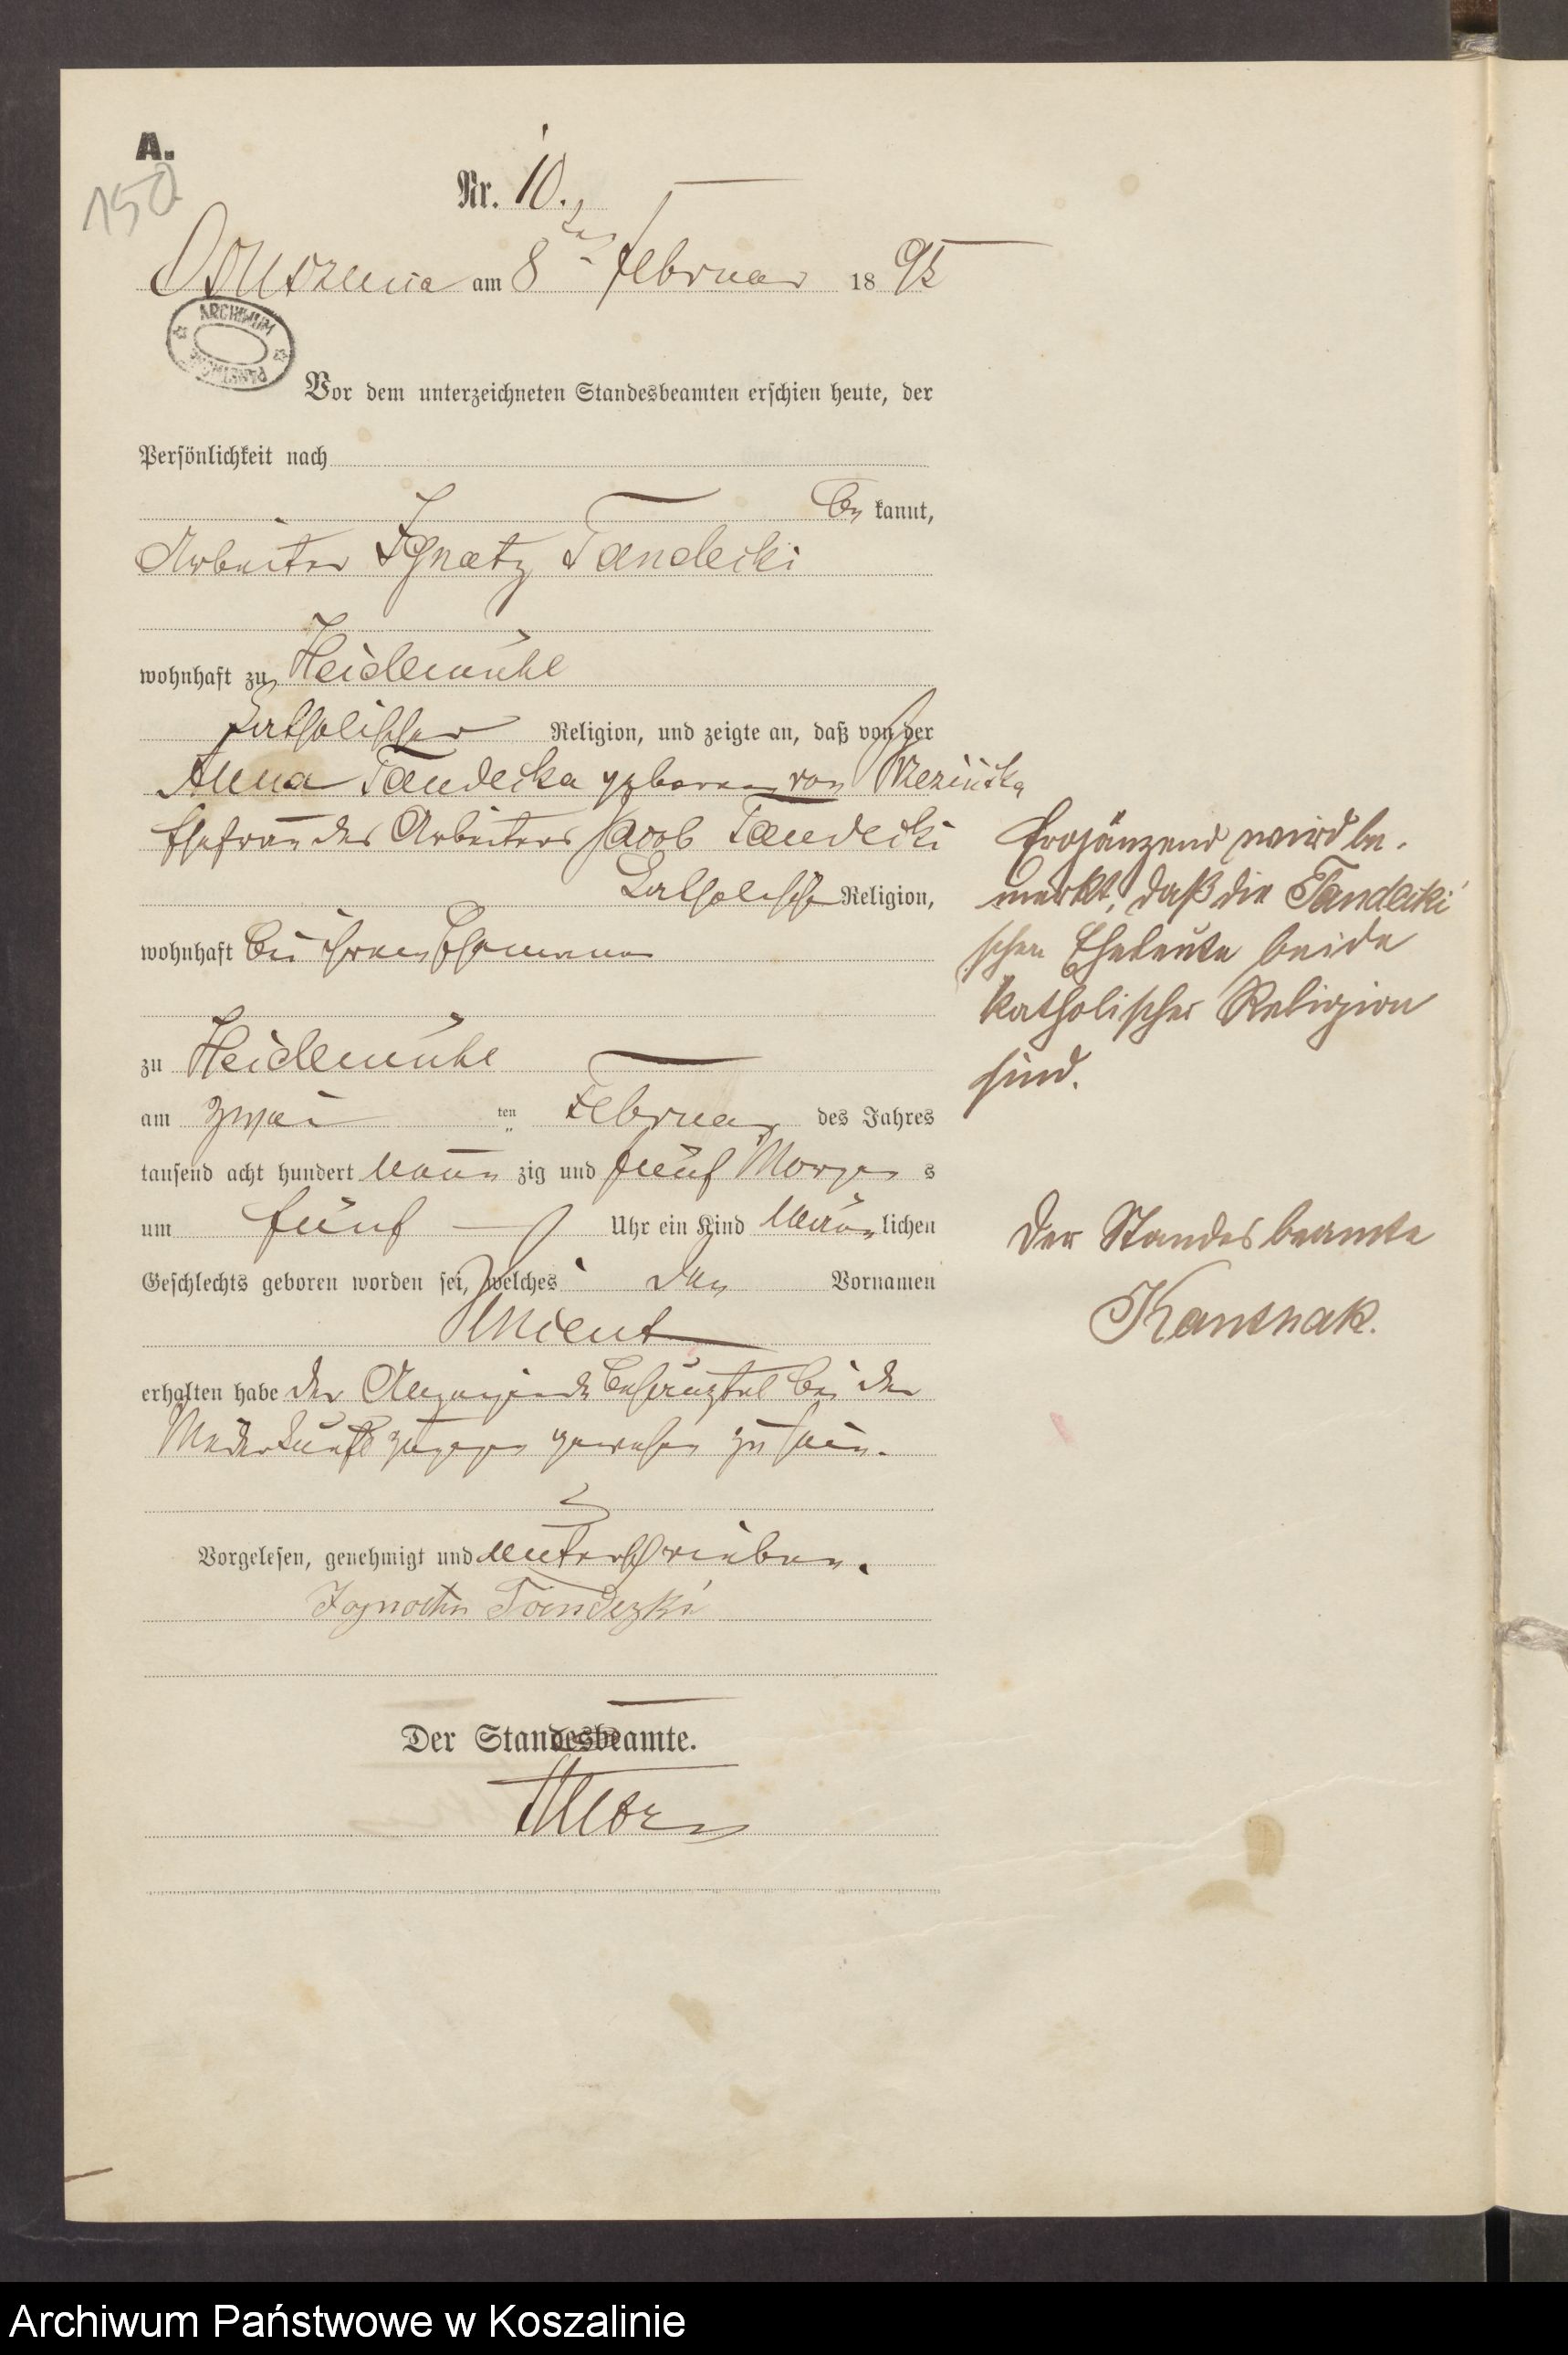 A.
150
Nr. 10.
am 8ten Februar 1895
ARCHIWUM
PAŃSTWOWE
Vor dem unterzeichneten Standesbeamten erschien heute, der
Persönlichkeit nach
be kannt,
Arbeiter Ignatz Tandecki
wohnhaft zu Heidemühl
katholischer Religion, und zeigte an, daß von der
Anna Tandecka geborenen von
Ehefrau des Arbeiters Jacob Tandecki
katholischer Religion,
wohnhaft bei ihrem Ehemanne
zu Heidemühl
am zwei ten Februar des Jahres
tausend acht hundert neun zig und fünf Morgen s
um fünf Uhr ein Kind männlichen
Geschlechts geboren worden sei, welches den Vornamen
Vincent
erhalten habe der Anzeigende bei der
Niederkunft zugegen gewesen zu sein.
Vorgelesen, genehmigt und unterschrieben.
Der Standesbeamte.
Ergänzend wird be-
merkt, daß die Tandecki
schen Eheleute beide
katholischer Religion
sind.
Der Standesbeamte
Archiwum Państwowe w Koszalinie